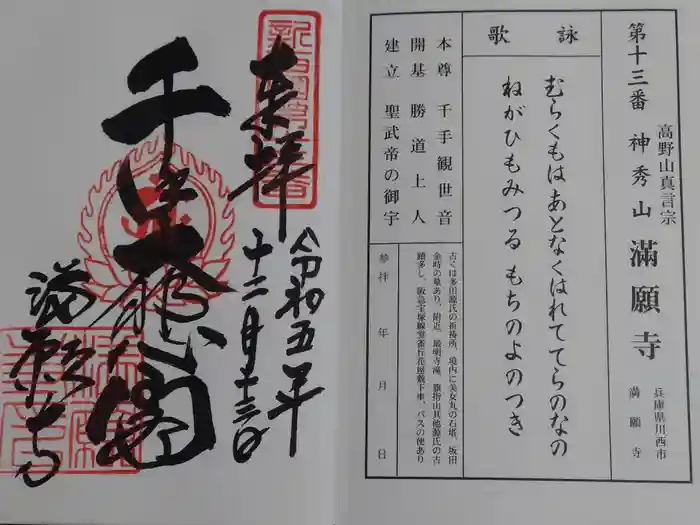 高野山真言宗
第十三番 神秀山 滿願寺
兵庫県川西市
満願寺
詠歌
むらくもは あとなくはれて てらのなの
ねがひもみつる もちのよのつき
本尊 千手観世音
開基 勝道上人
建立 聖武帝の御宇
古くは多田源氏の祈祷所、境内に美女丸の石塔、坂田
金時の墓あり、附近、最明寺滝、其他源氏の古
蹟多し、阪急宝塚線雲雀丘花屋敷下車、バスの便あり
参拝 年 月 日
奉拝
令和五年
十二月十三日
千手大悲閣
満願寺